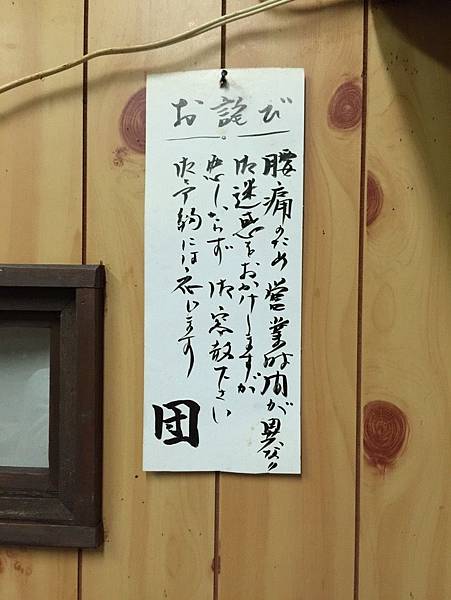 お詫び
腰痛のため営業時間が異なり
御迷惑をおかけしますが
悪しからず御容赦下さい
御予約には応じます
団